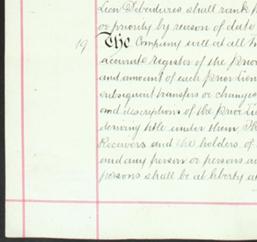 Lien Debentures shall rank
or priority by reason of date
19 The Company will at all
accurate register of the Prior
and amount of each Prior Lien
subsequent transfers or changes
and description of the Prior Lien
deriving title under them. The
Receivers and the holders of
and any person or persons
persons shall be at liberty at